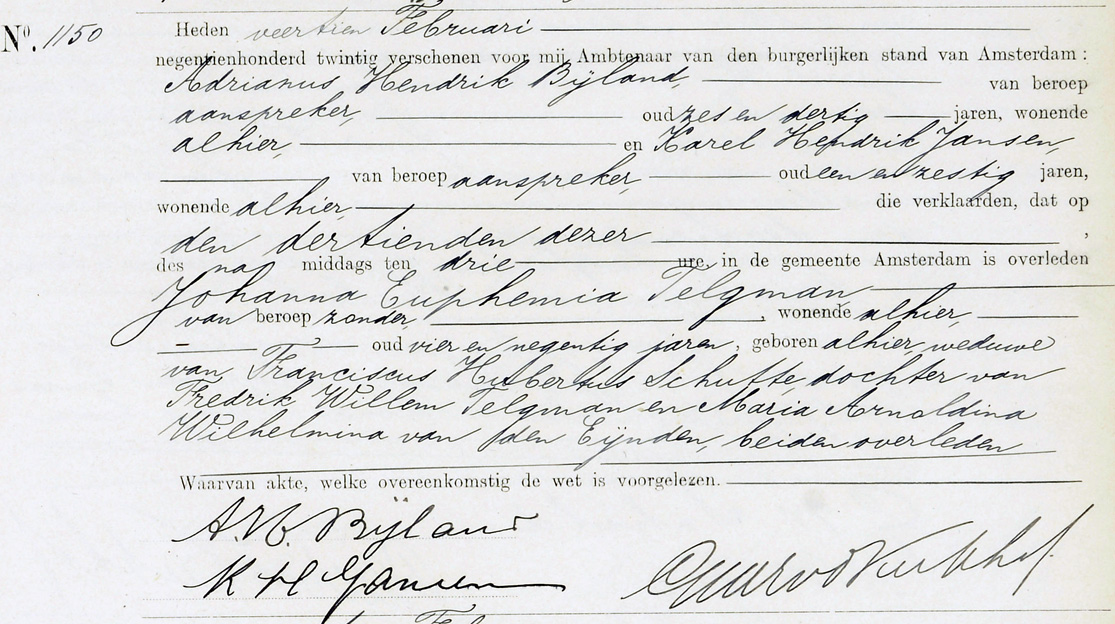 Nº. 1150
Heden veertien Februari
negentienhonderd twintig verschenen voor mij Ambtenaar van den burgerlijken stand van Amsterdam :
Adrianus Hendrik Bijland, van beroep
aanspreker, oud zes en dertig jaren, wonende
alhier, en Karel Hendrik Jansen,
van beroep aanspreker, oud een en zestig jaren,
wonende alhier, die verklaarden, dat op
den dertienden dezer ,
des na middags ten drie ure, in de gemeente Amsterdam is overleden
Johanna Euphemia Telgman
van beroep zonder, , wonende alhier,
oud vier en negentig jaren, geboren alhier, weduwe
van Franciscus Hubertus Schutte, dochter van
Fredrik Willem Telgman en Maria Arnoldina
Wilhelmina van den Eijnden, beiden overleden
Waarvan akte, welke overeenkomstig de wet is voorgelezen.
A.H. Bijland
K H Jansen